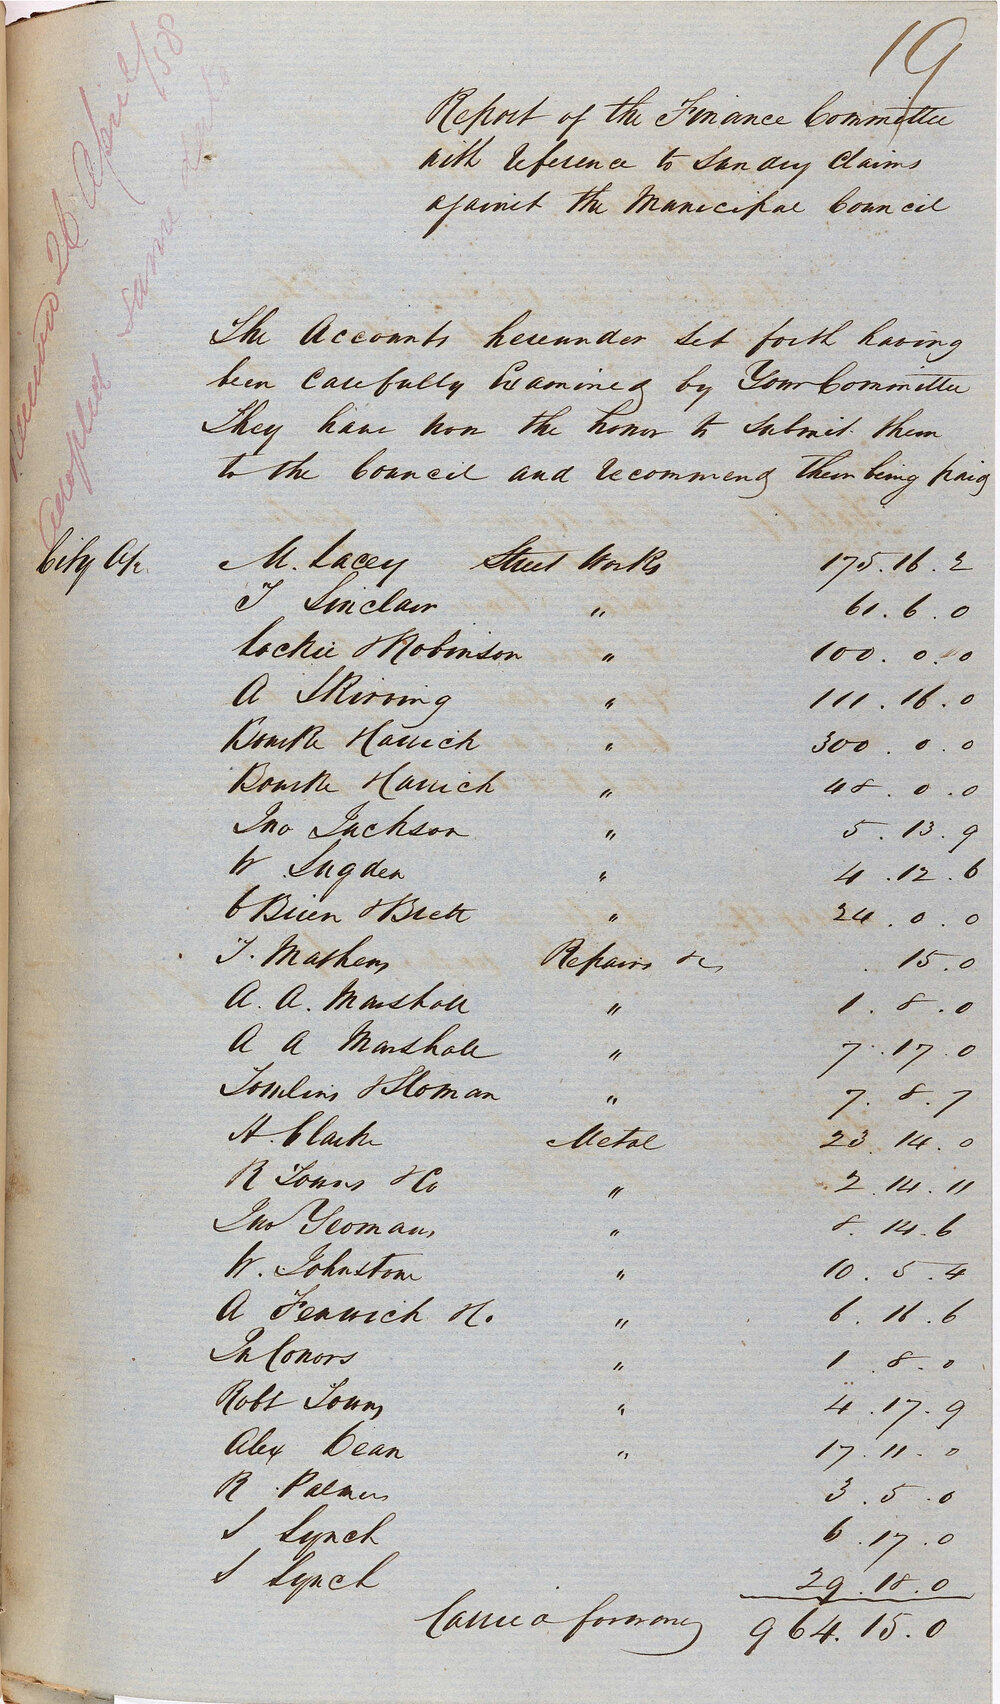 19
Received 26 April/58
adopted same date
Report of the Finance Committee
with reference to Sundry Claims
against the Municipal Council
The Accounts hereunder set forth having
been Carefully Examined by Your Committee
They have now the honor to submit them
to the Council and recommend their being paid
City A/c. M. Lacey Street Works 175.16.2
T Sinclair " 61.6.0
Lockie & Robinson " 100.0.0
A Skirving " 111.16.0
Bourke Harrich " 300.0.0
Bourke Harrich " 48.0.0
Jno Jackson " 5.13.9
W Sugden " 4.12.6
OBrien & Brett " 24.0.0
T. Mathews Repairs &c 15.0
A. A. Marshall " 1.8.0
A A Marshall " 7.17.0
Tomlins & Sloman " 7.8.7
H. Clarke Metal 23.14.0
R Towns & Co " 2.14.11
Jno Yeomans " 8.14.6
W. Johnstone " 10.5.4
A Fenwick " 6.16.6
Conors " 1.8.0
Robt Towns " 4.17.9
Alex Dean " 17.11.0
R Palmer 3.5.0
S Lynch 6.17.0
S Lynch 29.18.0
Carried forward 964.15.0